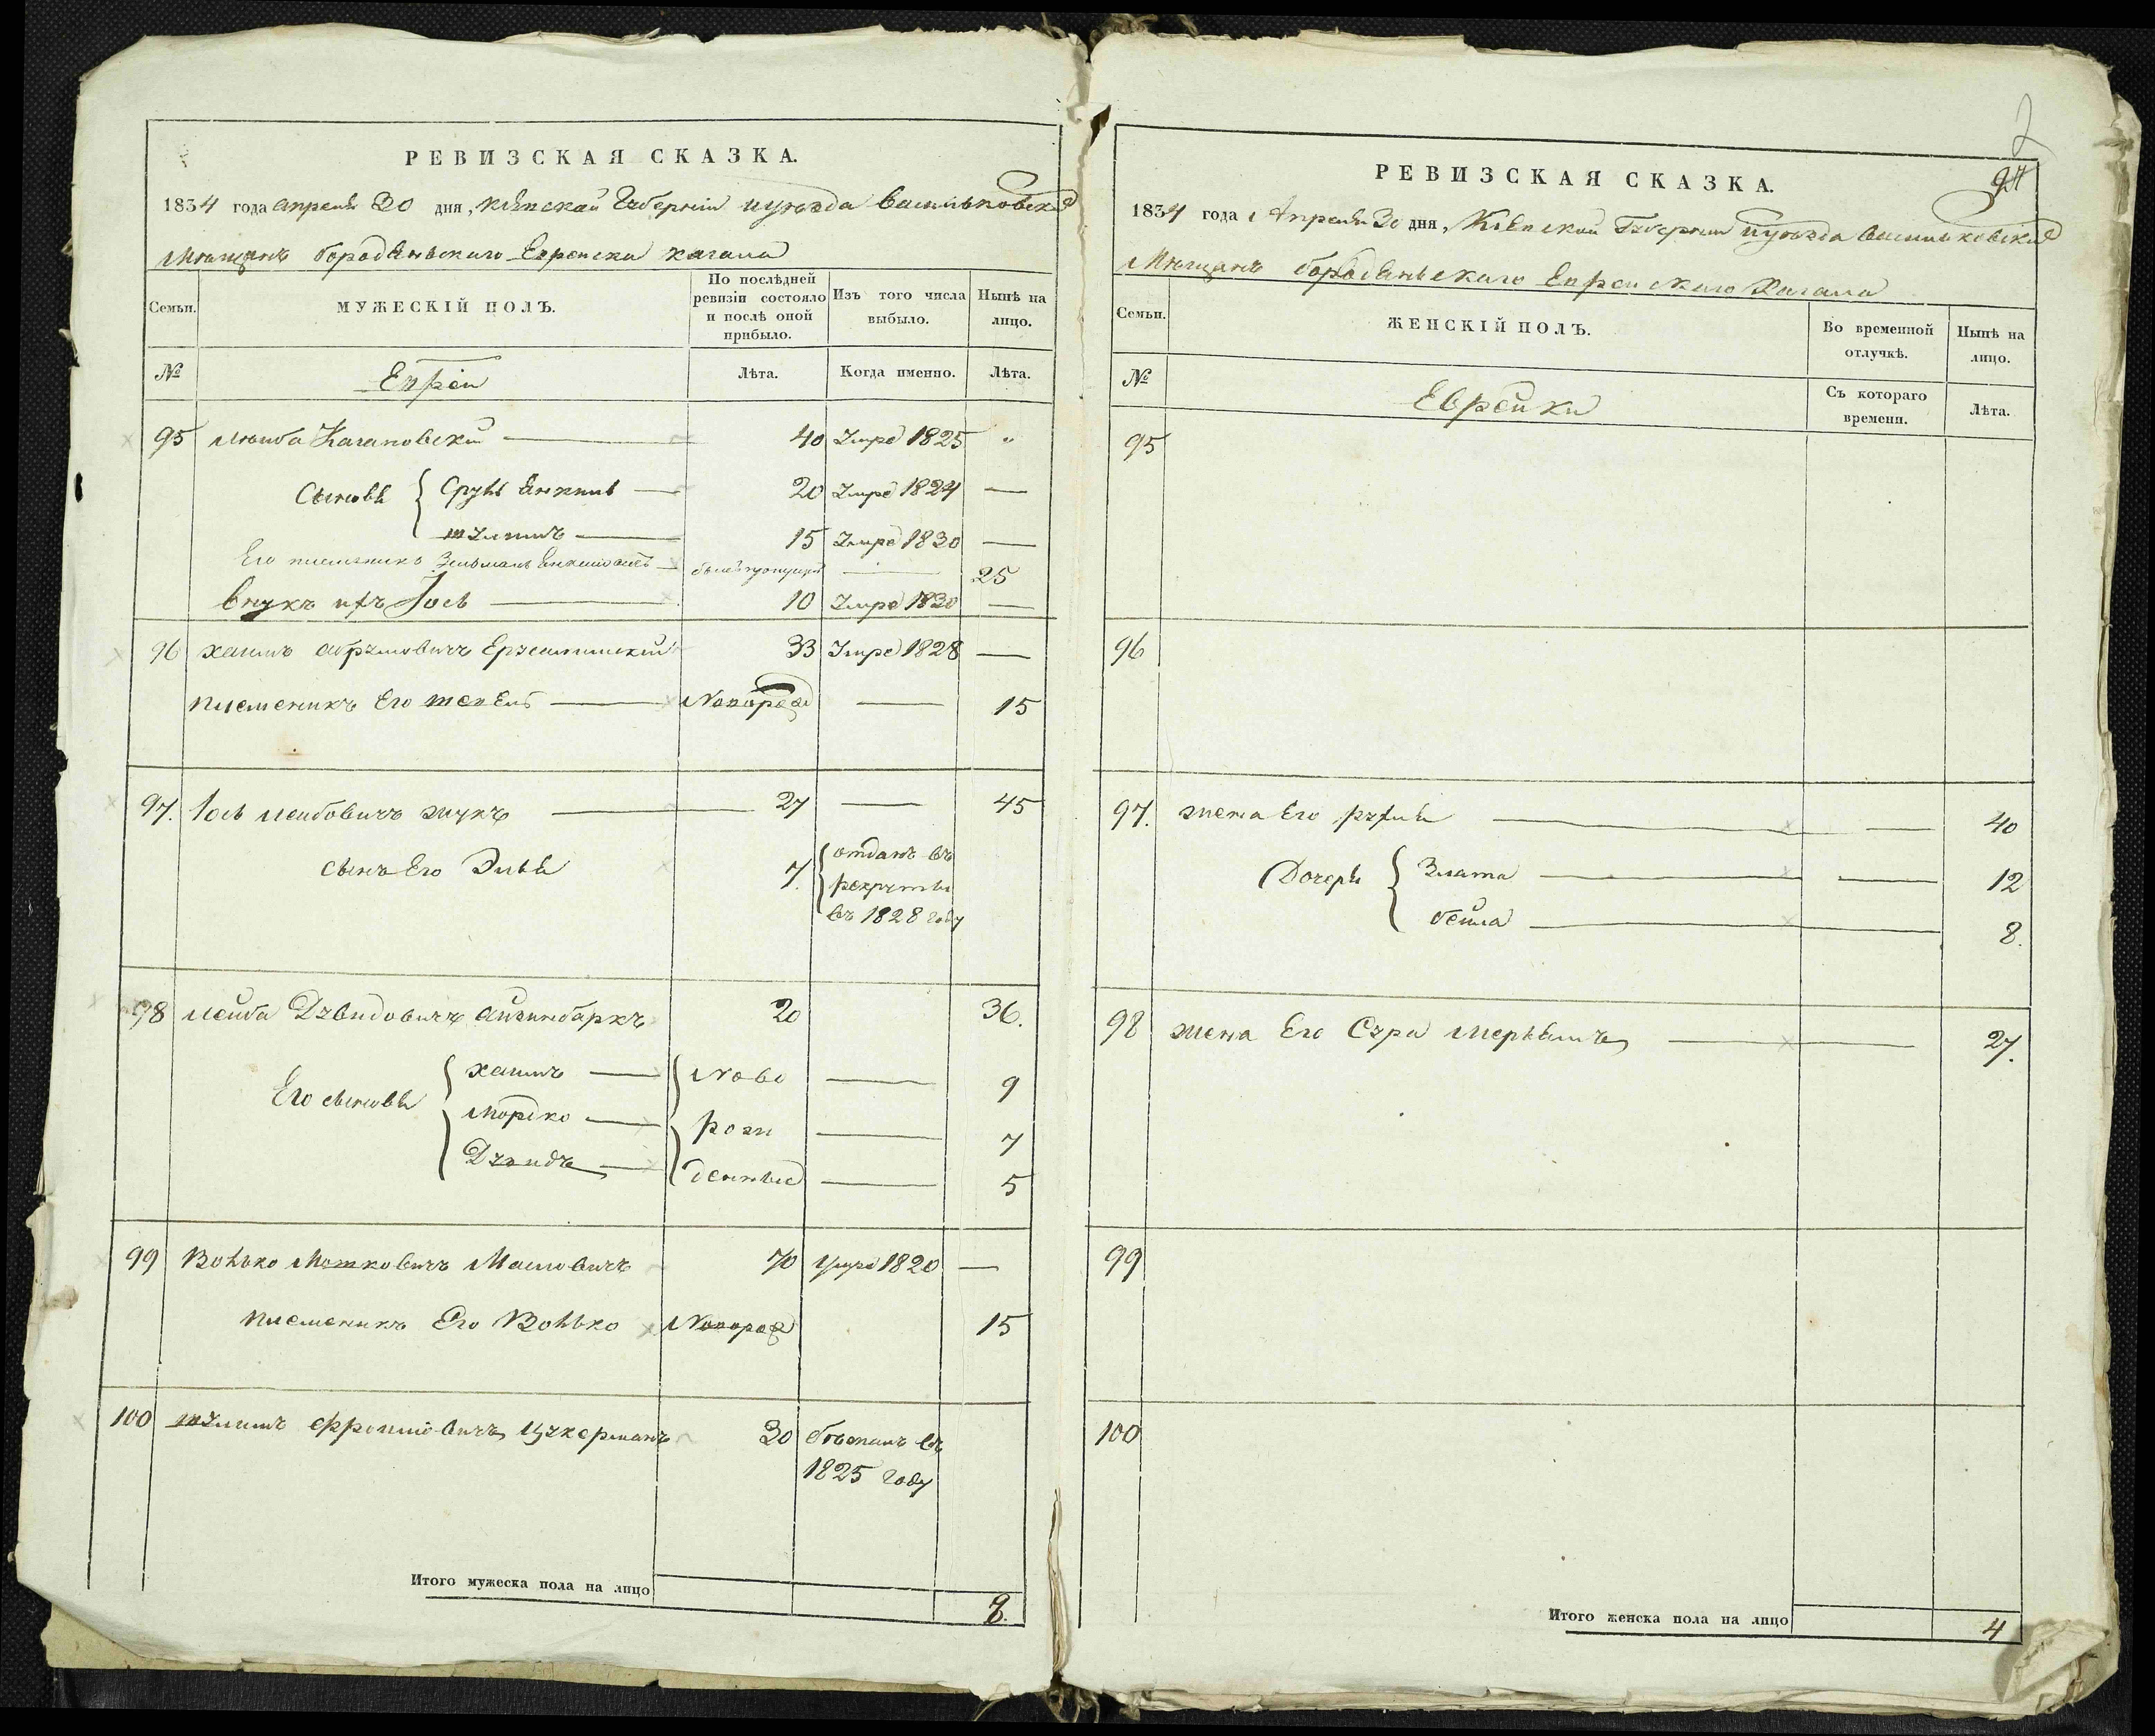 РЕВИЗСКАЯ СКАЗКА.
1834 года апреля 30 дня, Кіевской Губерніи иуѣзда Васильковска
Мѣщанъ бородянъскаго Еврейска кагала
Семьи.
МУЖЕСКІЙ ПОЛЪ.
По послѣдней ревизіи состояло и послѣ оной прибыло.
Изъ того числа выбыло.
Нынѣ на лицо.
№
Евреи
Лѣта.
Когда именно.
Лѣта.
95 Лейба Кагановский 40 Умре 1825 "
Сыновя { Сруль Янкель 20 Умре 1824 —
15 Умре 1830 —
Его племеникъ Зельманъ 25
Внукъ ихъ Іось 10 Умре 1830 —
96 Хаимъ Абрумовичъ 33 Умре 1828 —
племеникъ Его Новорож 15
97. Іось Леибовичъ жукъ 27 — 45
сынъ Его Элья 7. { отданъ въ
рекруты
въ 1828 году
98 Лейба Дувидовичъ айзинбаркъ 20 36.
Его сыновя { хаимъ { Ново — 9
Мордко рож — 7
Дувидъ денные — 5
99 Волько Мошковичъ 70 Умре 1820 —
племеникъ Его Волько Новорож 15
100 Цукерманъ 30 бѣжалъ въ
1825 году
Итого мужеска пола на лицо 8.
94
РЕВИЗСКАЯ СКАЗКА.
1834 года Апреля 30 дня, Кіевской Губерніи иуѣзда Васильковска
Мѣщанъ бородяньскаго Еврейскаго Кагала
Семьи.
ЖЕНСКІЙ ПОЛЪ.
Во временной отлучкѣ.
Нынѣ на лицо.
№
Еврейки
Съ котораго времени.
Лѣта.
95
96
97. жена Его рухля — 40
Дочеря { Злата — 12
бейла 8.
98 жена Его Сура 27.
99
100
Итого женска пола на лицо 4